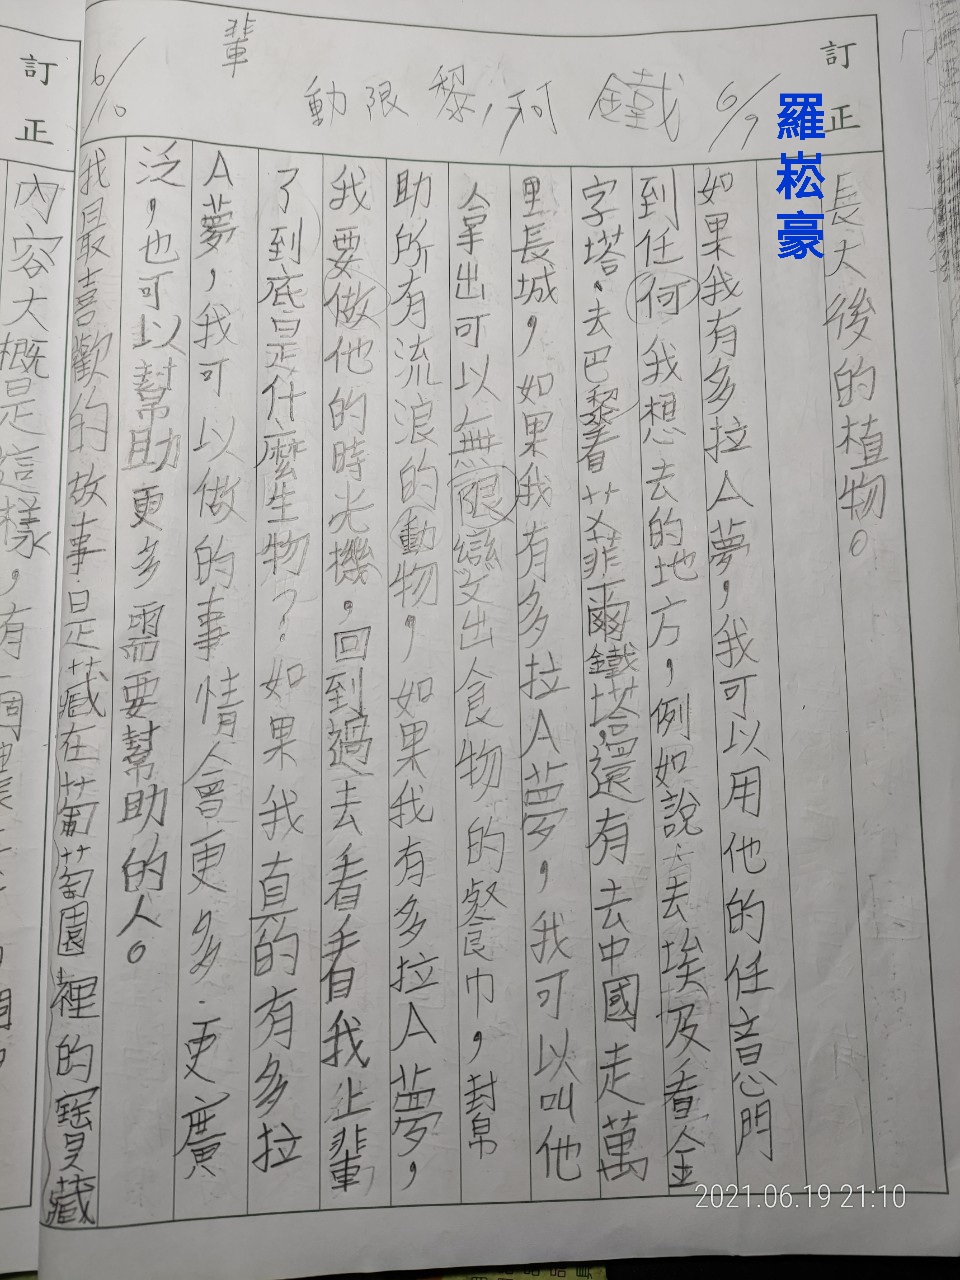 訂正
羅崧豪
長大後的植物。
6/9
鐵
如果我有多拉A夢,我可以用他的任意門
何
到任何我想去的地方,例如說:去埃及看金
字塔。去巴黎看艾菲爾鐵塔,還有去中國走萬
黎,
里長城,如果我有多拉A夢,我可以叫他
限
拿出可以無限變出食物的餐巾,幫
動
助所有流浪的動物,如果我有多拉A夢,
我要做他的時光機,回到過去看看我上輩
輩
了到底是什麼生物?如果我真的有多拉
A夢,我可以做的事情會更多.更廣
泛,也可以幫助更多需要幫助的人。
6/10
我最喜歡的故事是藏在葡萄園裡的寶藏
訂正
內容大概是這樣,有一個
2021.06.19 21:10